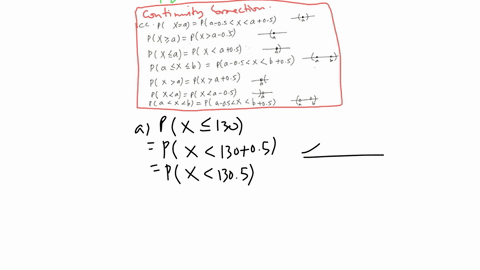 Continuity Correction.
S.C.C. P( X=a) = P(a-0.5<X<a+0.5)
P(X≥a) = P(X>a-0.5)
P(X≤a) = P(X<a+0.5)
P(a≤X≤b) = P(a-0.5<X<b+0.5)
P(X>a) = P(X>a+0.5)
P(X<a) = P(X<a-0.5)
P(a<X<b) = P(a-0.5<X<b+0.5)
a) P(X≤130)
= P(X<130+0.5)
= P(X<130.5)